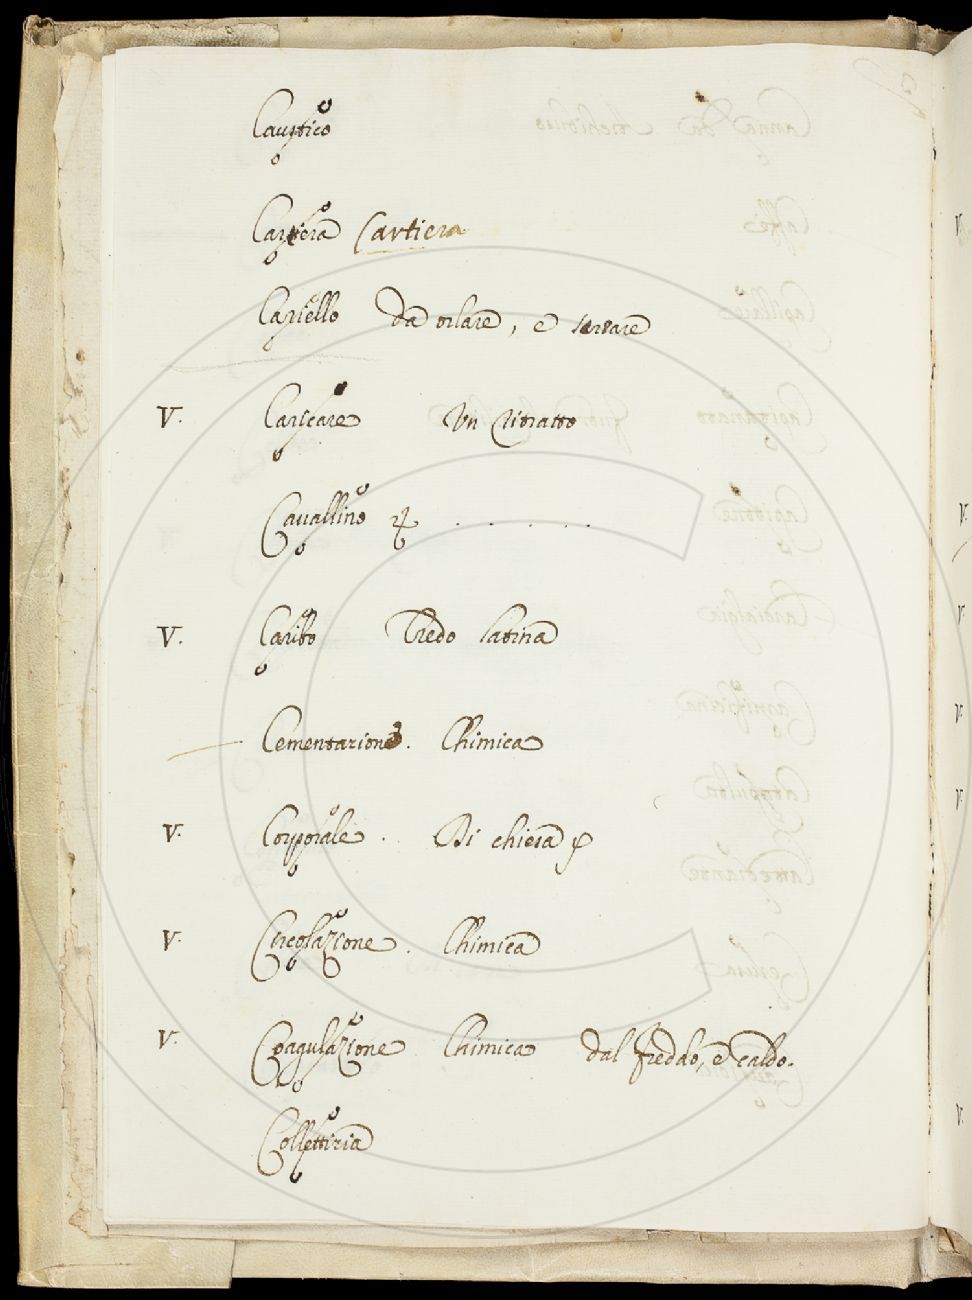 Caustico
Cartiera Cartiera
Capiello da orlare, e
V. Caricare Un Ritratto
Cavallino
V. Caribo Credo latina
Cementazione. Chimica
V. Corporale. Di chiesa
V. Circolazione. Chimica
V. Coagulazione Chimica dal freddo, e caldo.